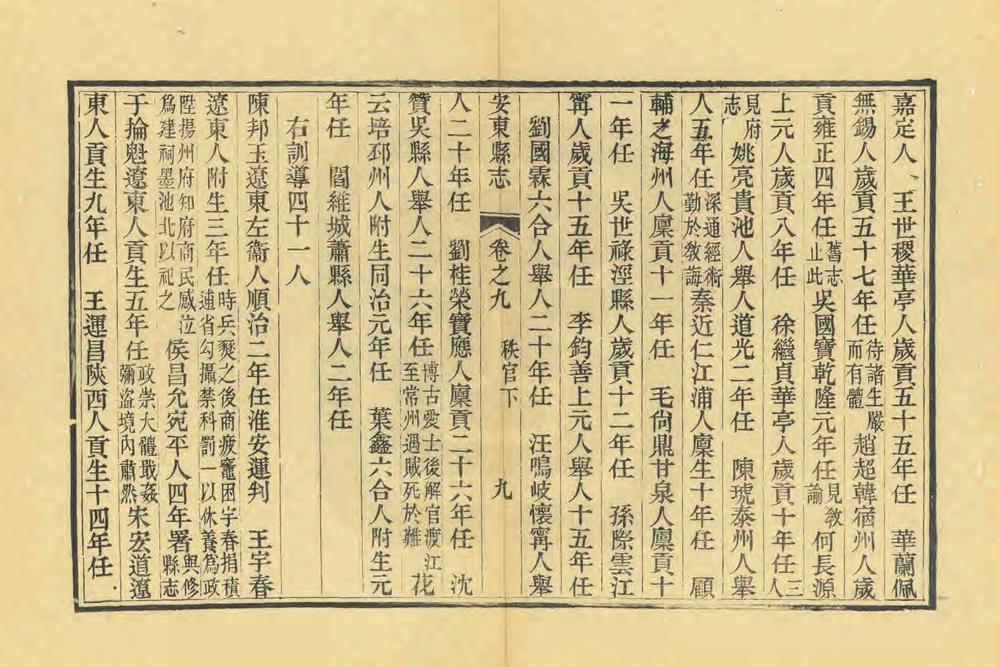 嘉定人　王世稷華亭人歲貢五十五年任　華蘭佩
無錫人歲貢五十七年任待諸生嚴而有體趙超韓宿州人歲
貢雍正四年任舊志止此吳國寶乾隆元年任見敎諭何長源
上元人歲貢八年任　徐繼貞華亭人歲貢十年任三人
見府志姚亮貴池人舉人道光二年任　陳琥泰州人舉
人五年任深通經術勤於敎誨秦近仁江浦人廩生十年任　顧
輔之海州人廩貢十一年任　毛尙鼎甘泉人廩貢十
一年任　吳世祿涇縣人歲貢十二年任　孫際雲江
甯人歲貢十五年任　李鈞善上元人舉人十五年任
劉國霖六合人舉人二十年任　汪鳴岐懷甯人舉
安東縣志　卷之九　秩官下　九
人二十年任　劉桂榮寶應人廩貢二十六年任　沈
贊吳縣人舉人二十六年任博古愛士後解官渡江至常州遇賊死於難花
云培邳州人附生同治元年任　葉鑫六合人附生元
年任　閻維城蕭縣人舉人二年任
右訓導四十一人
陳邦玉遼東左衞人順治二年任淮安運判　王宇春
遼東人附生三年任時兵燹之後商疲竈困宇春捐積逋省勾攝禁科罰一以休養爲政
陞揚州府知府商民感泣爲建祠墨池北以祀之侯昌允宛平人四年署與修縣志
于掄魁遼東人貢生五年任政崇大體戢姦彌盜境內肅然宋宏道遼
東人貢生九年任　王運昌陜西人貢生十四年任